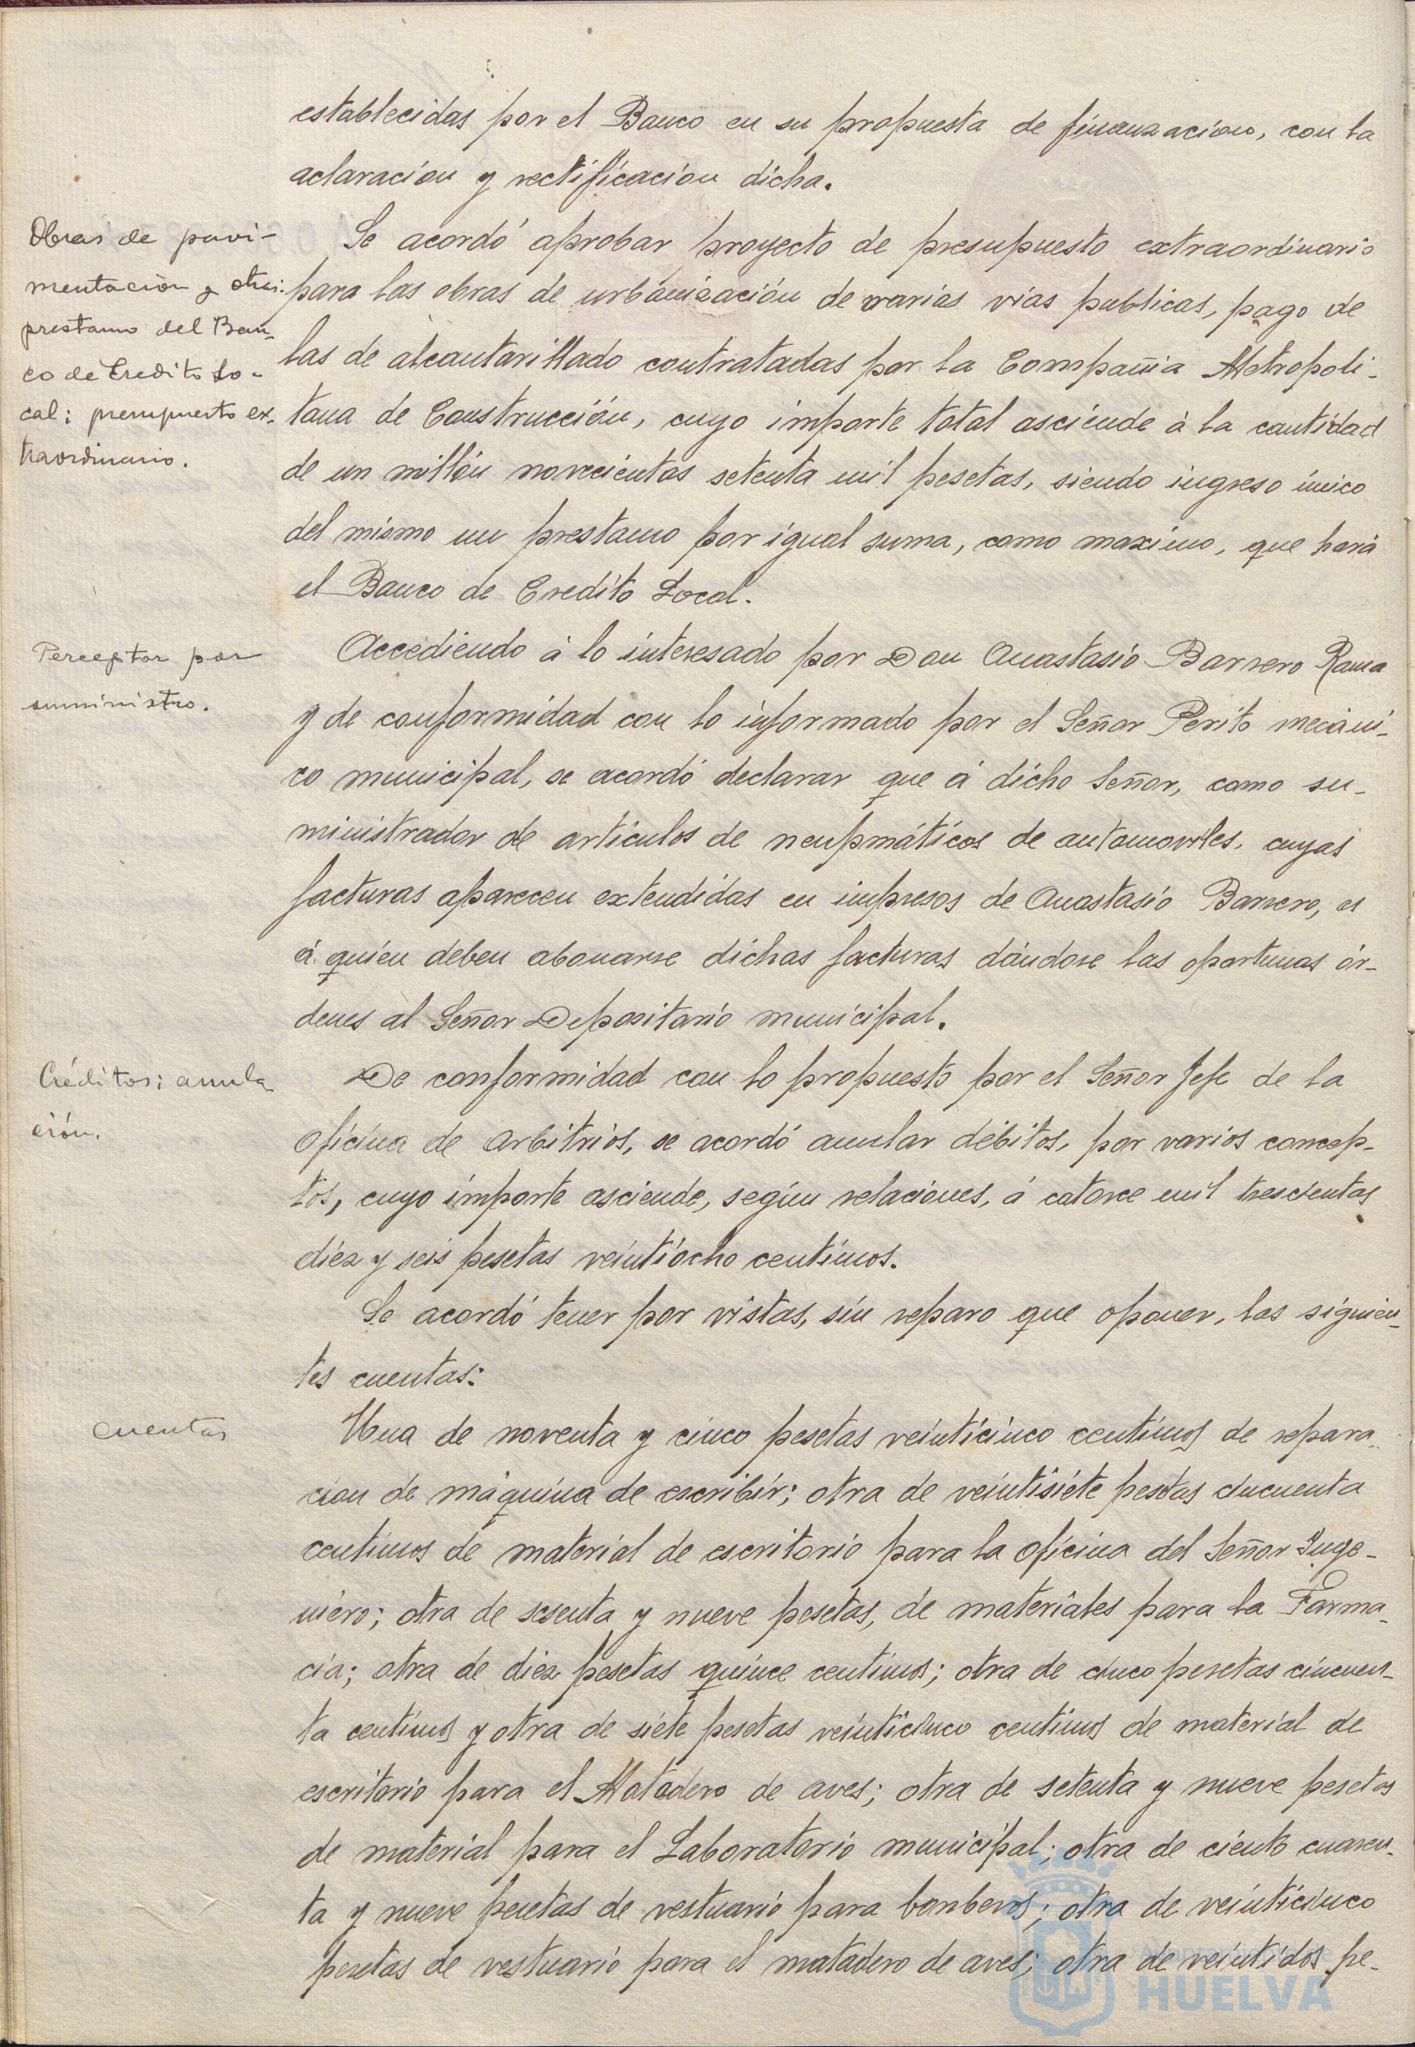 establecidas por el Banco en su propuesta de financiacion, con la
aclaración y rectificacion dicha.
Obras de pavi-
mentación y otras:
prestamo del Ban-
co de Credito Lo-
cal: presupuesto ex-
traordinario.
Se acordó aprobar proyecto de presupuesto extraordinario
para las obras de urbanización de varias vias publicas, pago de
las de alcantarillado contratadas por la Compañia Metropoli-
tana de Construcción, cuyo importe total asciende á la cantidad
de un millón novecientas setenta mil pesetas, siendo ingreso único
del mismo un prestamo por igual suma, como maximo, que hará
el Banco de Credito Local.
Perceptor por
suministro.
Accediendo á lo interesado por Don Anastasio Barrero Rama
y de conformidad con lo informado por el Señor Perito mecáni-
co municipal, se acordó declarar que á dicho Señor, como su-
ministrador de artículos de neupmáticos de automoviles, cuyas
facturas aparecen extendidas en impresos de Anastasio Barrero, es
á quien deben abonarse dichas facturas dándose las oportunas ór-
denes al Señor Depositario municipal.
Créditos: anula
ción.
De conformidad con lo propuesto por el Señor Jefe de la
oficina de arbitrios, se acordó anular débitos, por varios concep-
tos, cuyo importe asciende, según relaciones, á catorce mil trescientas
diez y seis pesetas veintiocho centimos.
Se acordó tener por vistas, sin reparo que oponer, las siguien-
tes cuentas:
cuentas
Una de noventa y cinco pesetas veinticinco centimos de repara-
cion de máquina de escribir; otra de veintisiete pesetas cincuenta
centimos de material de escritorio para la oficina del Señor Inge-
niero; otra de sesenta y nueve pesetas, de materiales para la Farma-
cia; otra de diez pesetas quince centimos; otra de cinco pesetas cincuen-
ta centimos y otra de siete pesetas veinticinco centimos de material de
escritorio para el Matadero de aves; otra de setenta y nueve pesetas
de material para el Laboratorio municipal; otra de ciento cuaren-
ta y nueve pesetas de vestuario para bomberos; otra de veinticinco
pesetas de vestuario para el matadero de aves; otra de veintidos pe-
HUELVA